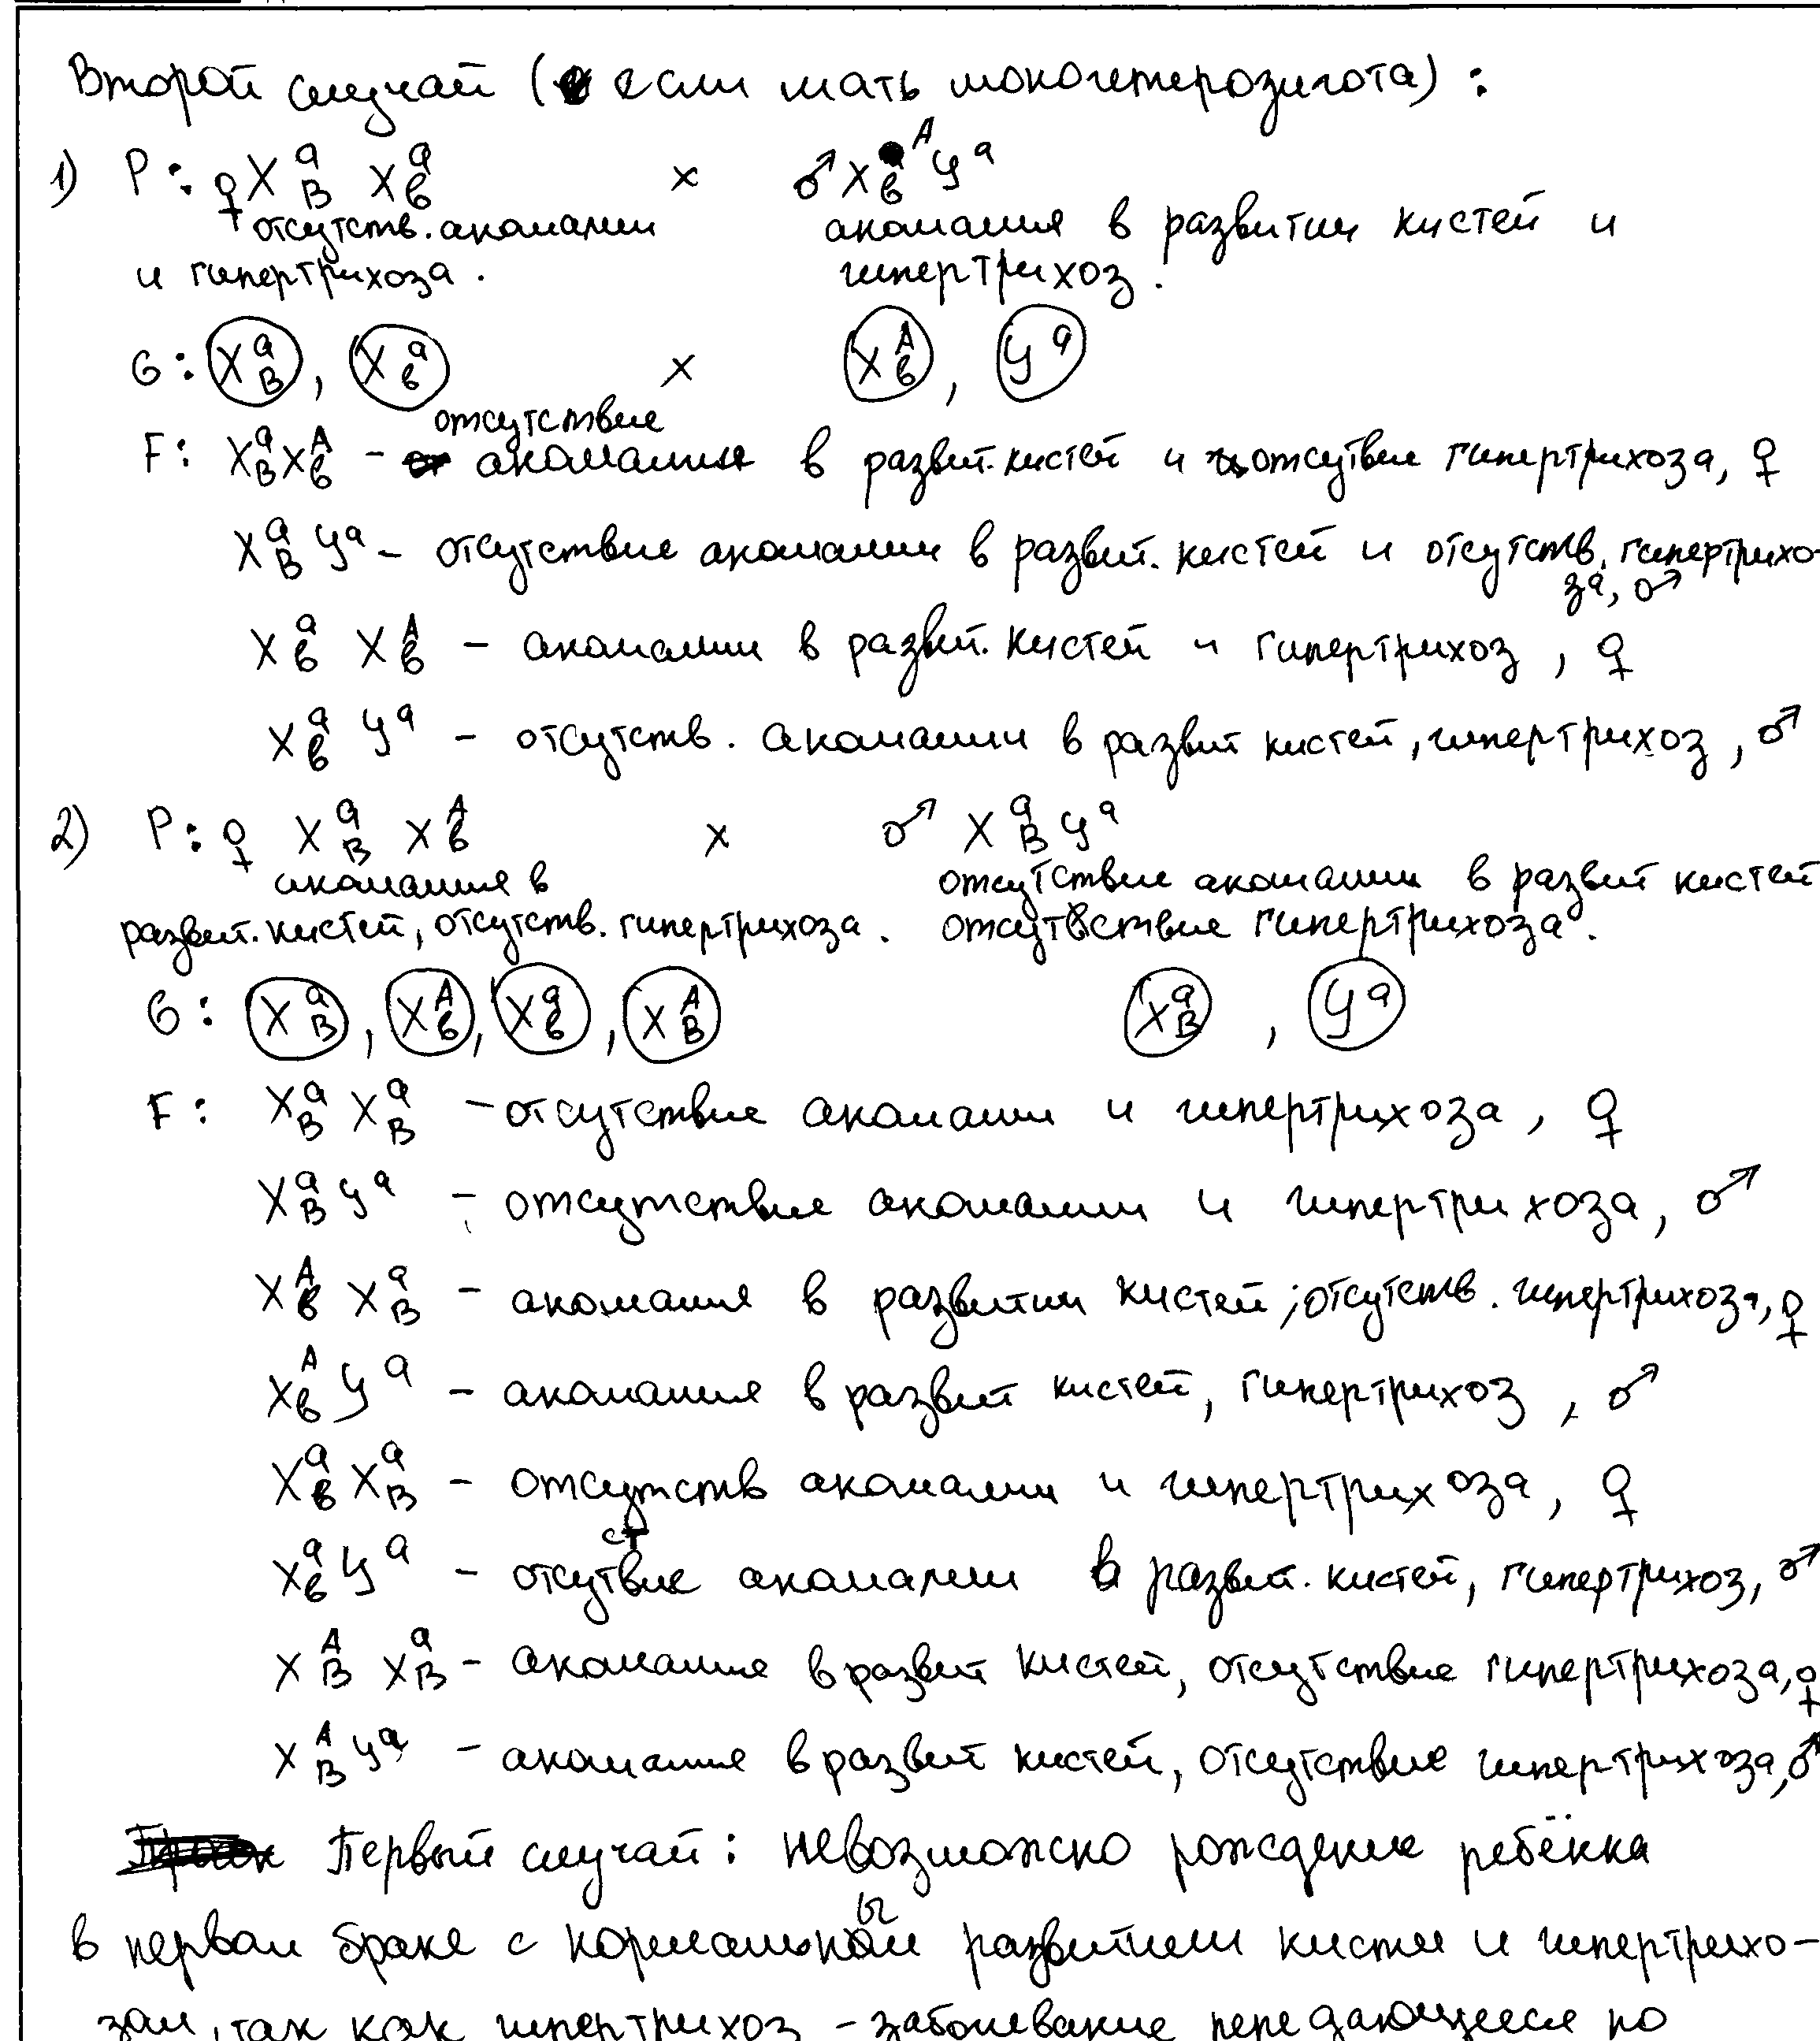 Второй случай (если мать моногетерозигота):
1) P: ♀ X^a_B X^a_b × ♂ X^A_b Y^a
отсутств. аномалии аномалия в развитии кистей и
и гипертрихоза. гипертрихоз.
G: X^a_B, X^a_b × X^A_b, Y^a
отсутствие
F: X^a_B X^A_b - аномалии в развит. кистей и отсутвие гипертрихоза, ♀
X^a_B Y^a - отсутствие аномалии в развит. кистей и отсутств. гипертрихо-
за, ♂
X^a_b X^A_b - аномалии в развит. кистей и гипертрихоз, ♀
X^a_b Y^a - отсутств. аномалии в развит кистей, гипертрихоз, ♂
2) P: ♀ X^a_B X^A_b × ♂ X^a_B Y^a
аномалия в отсутствие аномалии в развит кистей
развит. кистей, отсутств. гипертрихоза. отсутствие гипертрихоза.
G: X^a_B, X^A_b, X^a_b, X^A_B X^a_B, Y^a
F: X^a_B X^a_B - отсутствие аномалии и гипертрихоза, ♀
X^a_B Y^a - отсутствие аномалии и гипертрихоза, ♂
X^A_b X^a_B - аномалия в развитии кистей; отсутств. гипертрихоза, ♀
X^A_b Y^a - аномалия в развит кистей, гипертрихоз, ♂
X^a_b X^a_B - отсутств аномалии и гипертрихоза, ♀
X^a_b Y^a - отсутствие аномалии в развит. кистей, гипертрихоз, ♂
X^A_B X^a_B - аномалия в развит кистей, отсутствие гипертрихоза, ♀
X^A_B Y^a - аномалия в развит кистей, отсутствие гипертрихоза, ♂
Первый случай: невозможно рождение ребёнка
в первом браке с нормальным развитием кисти и гипертрихо-
зом, так как гипертрихоз - заболевание передающееся по